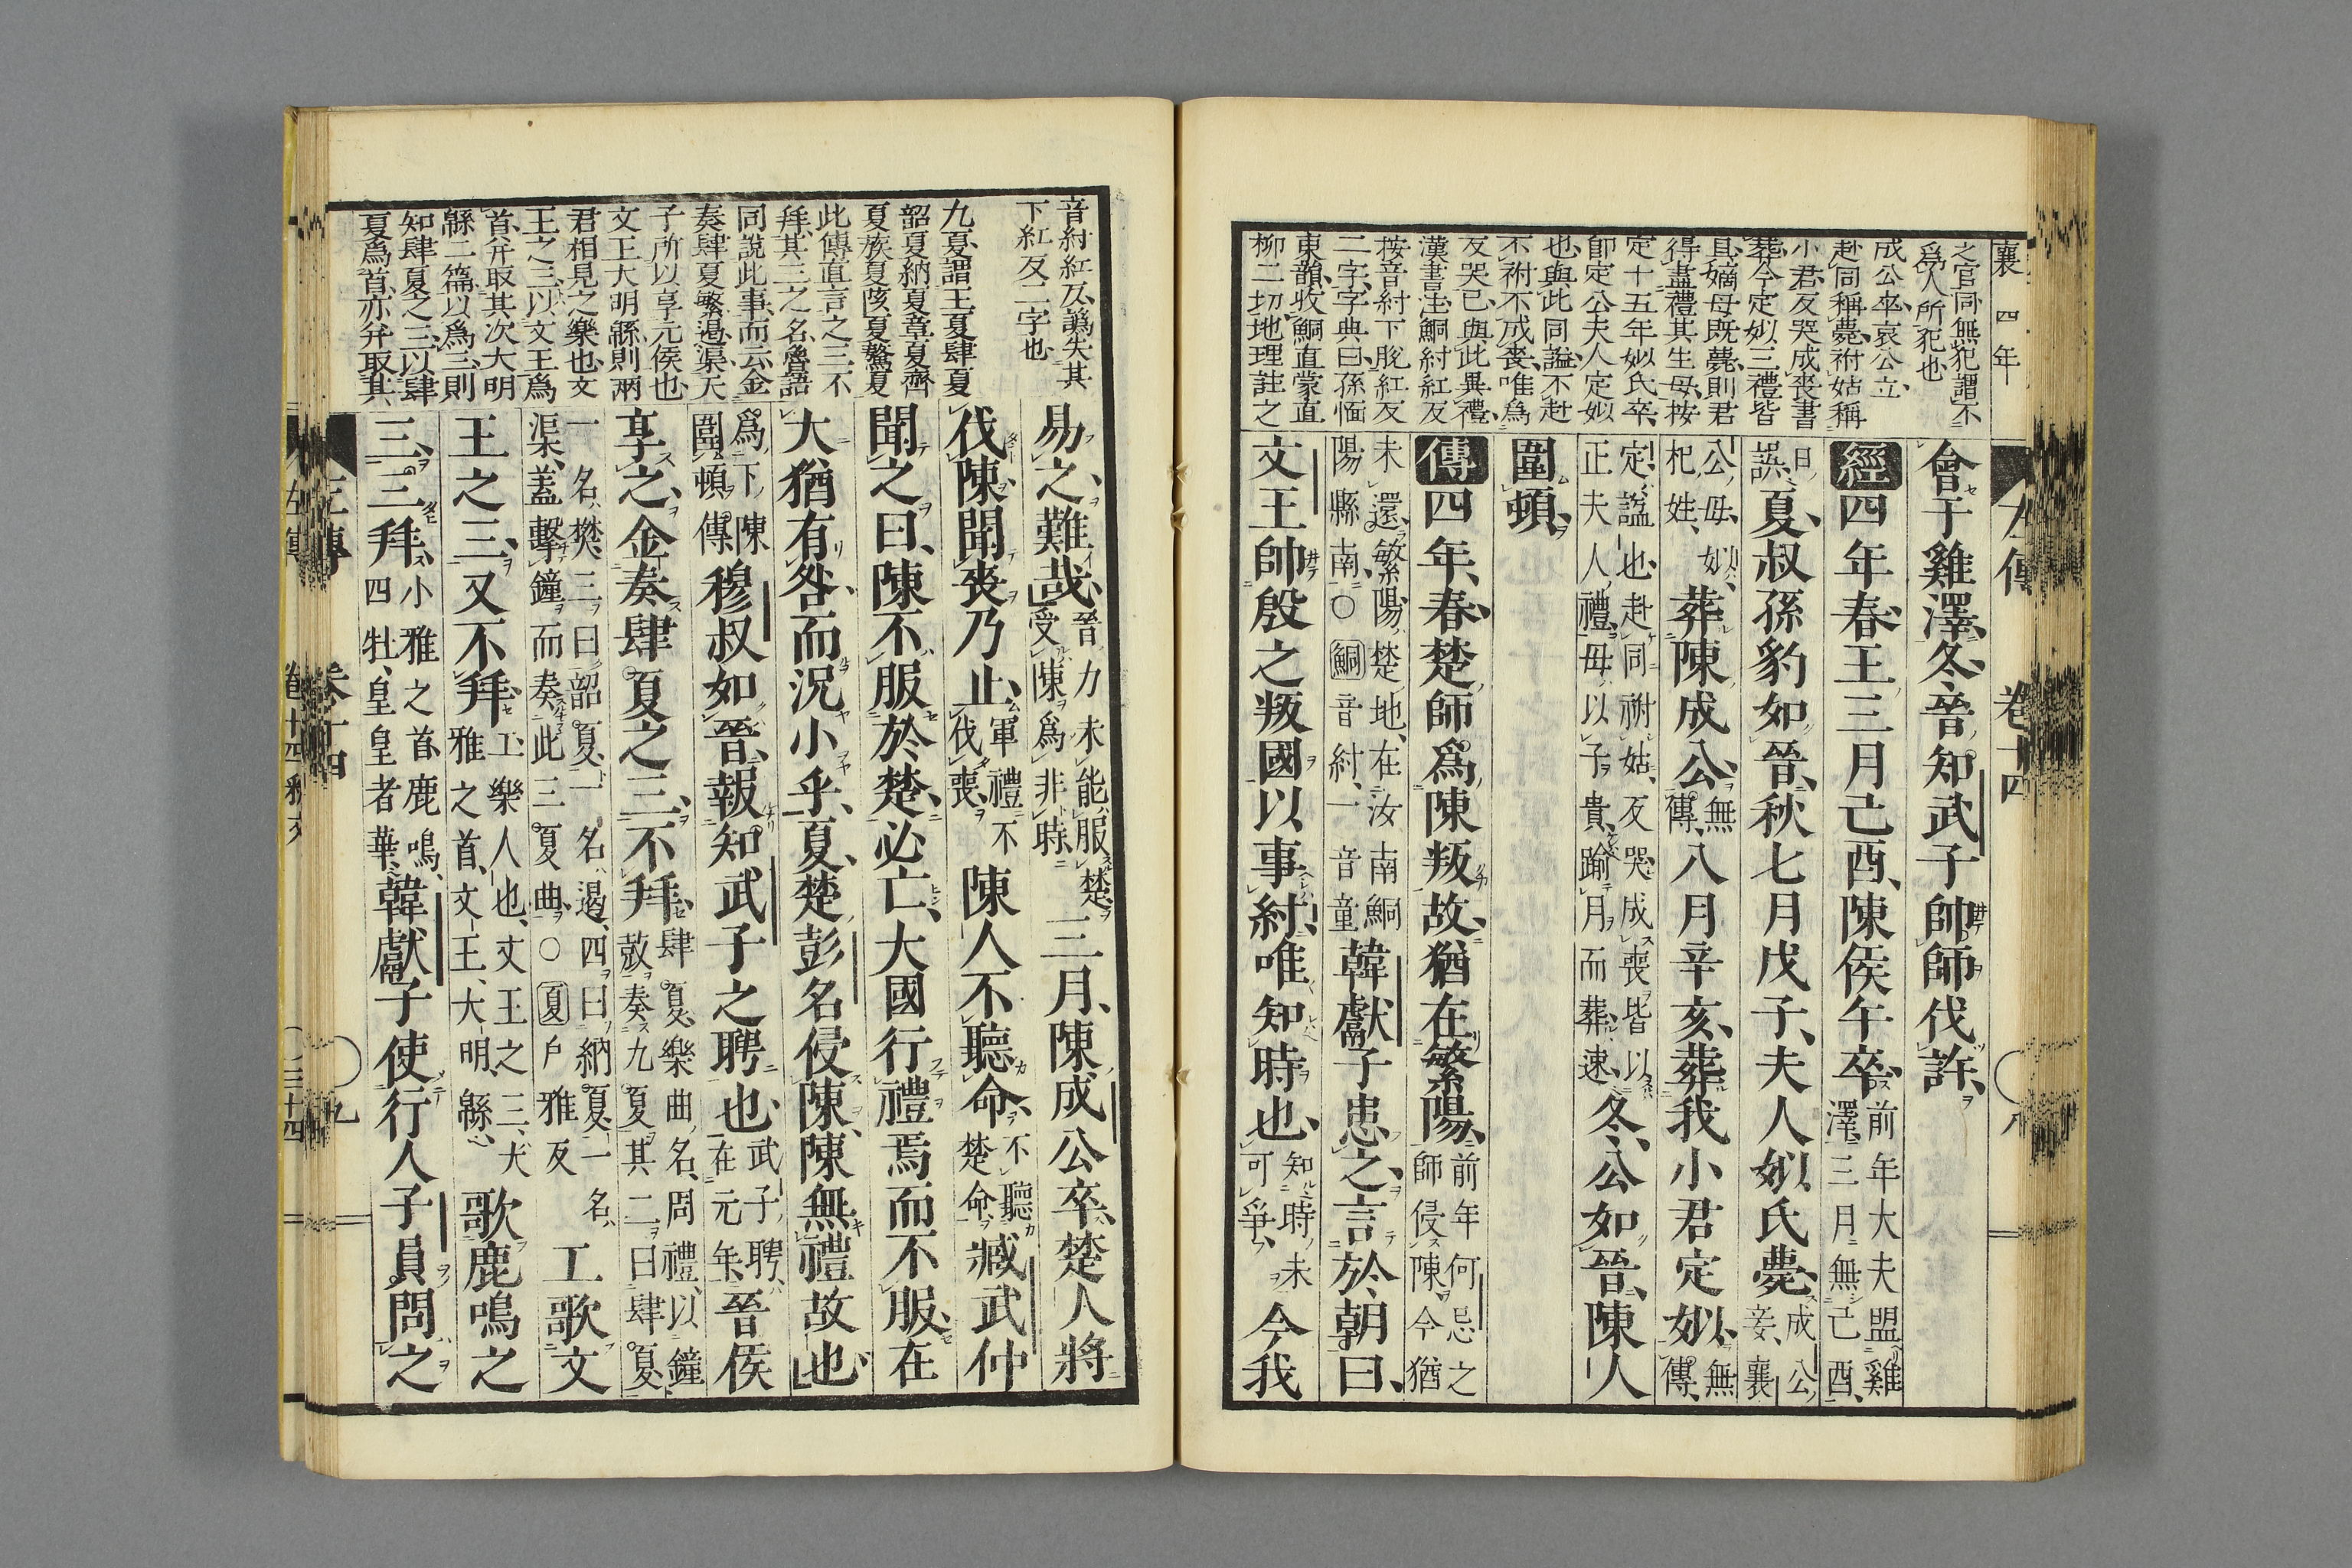 襄四年
之官同無犯謂不
爲人所犯也
成公卒哀公立、
赴同稱薨、祔姑稱
小君、反哭成喪書
葬、今定姒三禮皆
具、嫡母既薨、則君
得盡禮其生母、按
定十五年、姒氏卒、
卽定公夫人定姒
也、與此同謚、不赴
不祔不成喪、唯爲
反哭已、與此異禮、
漢書注、鮦紂紅反
按音紂下脫紅反
二字、字典曰、孫愐
東韻、收鮦直蒙直
柳二切、地理註之
左傳 卷十四 八
會于雞澤、冬、晉知武子帥師伐許、
經四年春、王三月己酉、陳侯午卒、前年大夫盟雞澤、三月無己酉、
日誤、夏、叔孫豹如晉、秋七月戊子、夫人姒氏薨、成公妾、襄
公母、姒杞姓、葬陳成公、無傳、八月辛亥、葬我小君定姒、無傳、
定謚也、赴同祔姑、反哭成喪、皆以正夫人禮、母以子貴、踰月而葬、速、冬、公如晉、陳人
圍頓、
傳四年、春、楚師爲陳叛故、猶在繁陽、前年何忌之師侵陳、今猶
未還、繁陽、楚地、在汝南鮦陽縣南、○鮦音紂、一音童韓獻子患之、言於朝曰、
文王帥殷之叛國以事紂、唯知時也、知時未可爭、今我
音紂紅反、譌失其
下紅反二字也
九夏、謂王夏肆夏
韶夏納夏章夏齊
夏族夏陔夏驁夏
此傳直言之三不
拜、其三之名、魯語
同說此事、而云、金
奏肆夏繁遏渠、天
子所以享元侯也、
文王大明緜則兩
君相見之樂也、文
王之三、以文王爲
首、幷取其次大明
緜二篇、以爲三、則
知肆夏之三、以肆
夏爲首、亦幷取其
易之、難哉、晉力未能服楚、受陳爲非時、三月、陳成公卒、楚人將
伐陳、聞喪乃止、軍禮不伐喪、陳人不聽命、不聽楚命、臧武仲
聞之曰、陳不服於楚、必亡、大國行禮焉而不服、在
大猶有咎、而況小乎、夏、楚彭名侵陳、陳無禮故也、
爲下陳圍頓傳穆叔如晉、報知武子之聘也、武子聘在元年、晉侯
享之、金奏肆夏之三、不拜、肆夏、樂曲名、周禮、以鐘鼓奏九夏、其二曰肆夏、
一名樊、三曰韶夏、一名遏、四曰納夏、一名渠、蓋擊鐘而奏此三夏曲、○夏戶雅反工歌文
王之三、又不拜、工樂人也、文王之三、大雅之首、文王、大明、緜、歌鹿鳴之
三、三拜、小雅之首、鹿鳴、四牡、皇皇者華、韓獻子使行人子員問之
左傳 卷十四 九